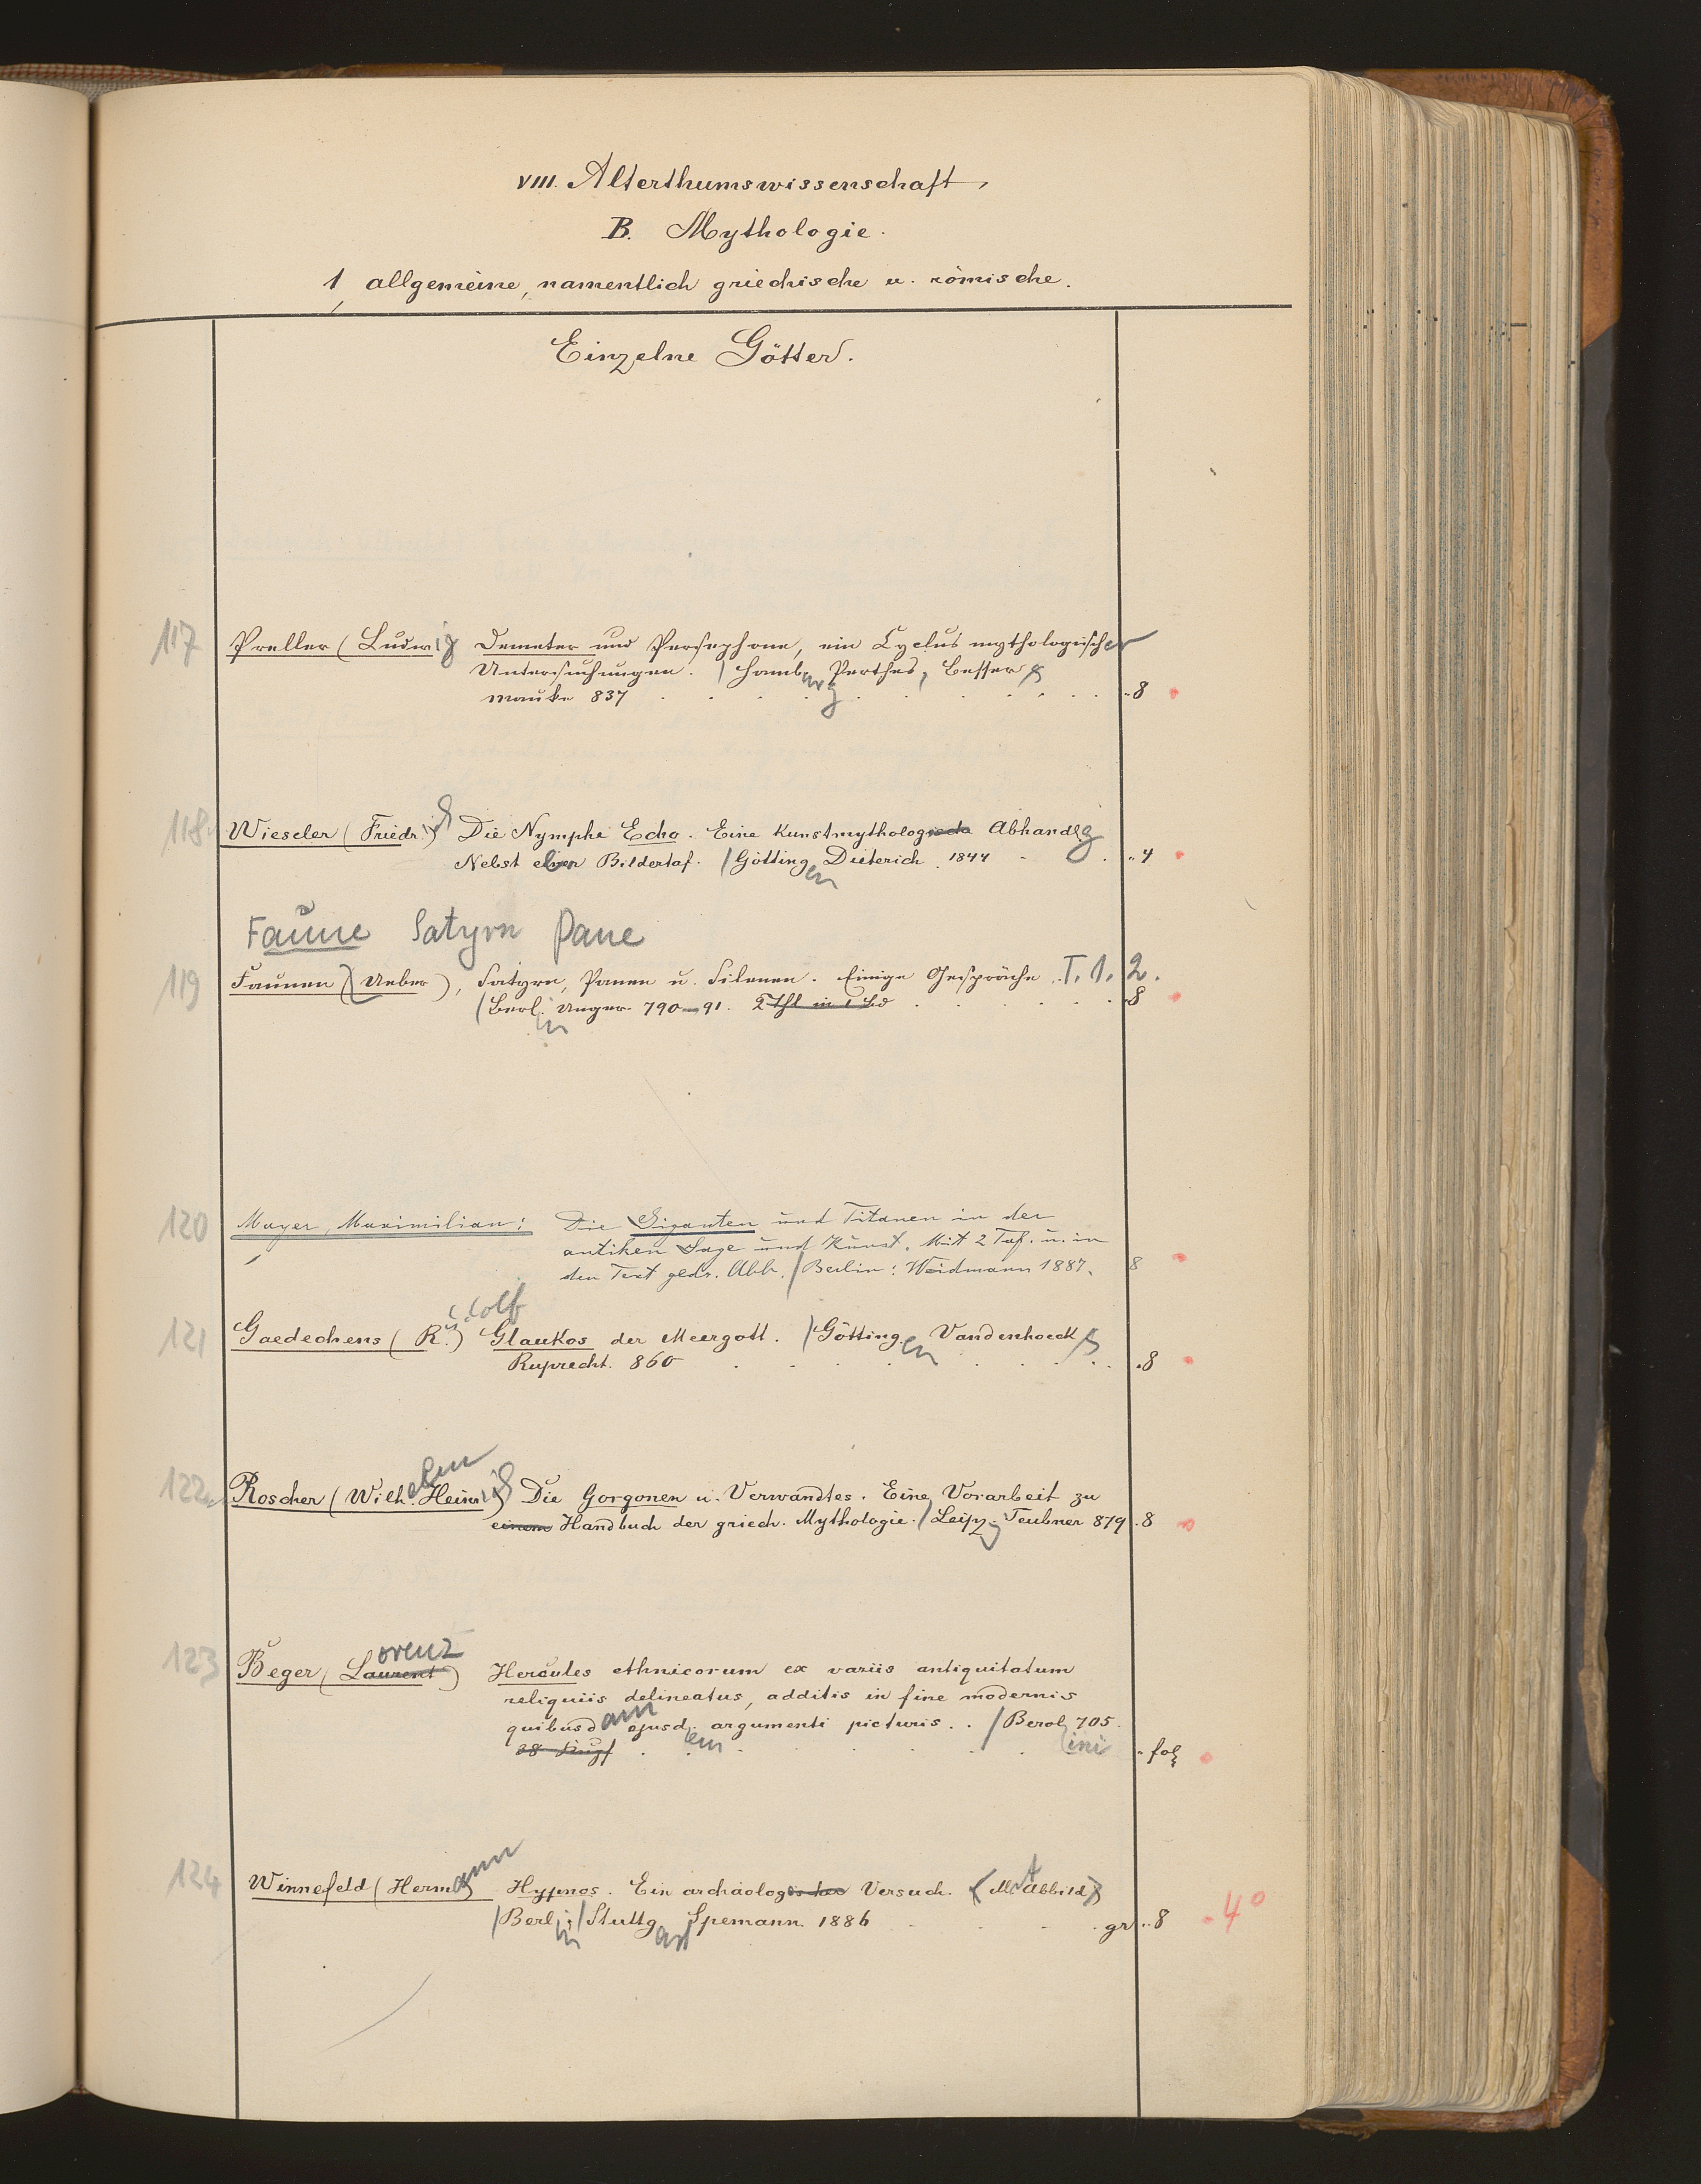 VIII. Alterthumswissenschaft
B. Mythologie.
1, allgemeine, namentlich griechische u. römische.
Einzelne Götter.
117 Preller (Ludwig Demeter und Persephone, ein Cyclus mythologischer
Untersuchungen. / Hamburg Perthes, Besser &
Mauke 837 . . . . . . . . . . 8
118 Wieseler (Friedr.) Die Nymphe Echo. Eine Kunstmythologische Abhandlg
Nebst einer Bildertaf. / Göttingen Dieterich 1844 . . 4
Faune Satyrn Pane
119 Faunen (Ueber), Satyrn, Panen u. Silenen. Einige Gespräche T. 1. 2.
/ Berlin Unger 790–91. 2 Thl in 1 Bd . . . . . 8
120 Mayer, Maximilian: Die Giganten und Titanen in der
antiken Sage und Kunst. Mit 2 Taf. u. in
den Text gedr. Abb. / Berlin: Weidmann 1887. 8
121 Gaedechens (R.) Glaukos der Meergott. / Göttingen Vandenhoeck &
Ruprecht. 860 . . . . . . . . 8
122 Roscher (Wilhelm Heinrich) Die Gorgonen u. Verwandtes. Eine Vorarbeit zu
einem Handbuch der griech. Mythologie. / Leipzig Teubner 879 . 8
123 Beger (Laurent) orenz Hercules ethnicorum ex variis antiquitatum
reliquiis delineatus, additis in fine modernis
quibusdam ejusdem argumenti picturis. . / Berolini 705.
38 Kupf . . . . . . . fol
124 Winnefeld (Hermann Hypnos. Ein archäologisches Versuch. (Mit Abbild)
/ Berlin; / Stuttgart Spemann 1886 . . . gr . . 8 4°